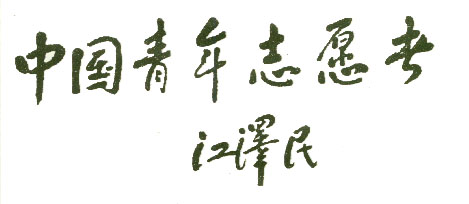 中国青年志愿者
江泽民